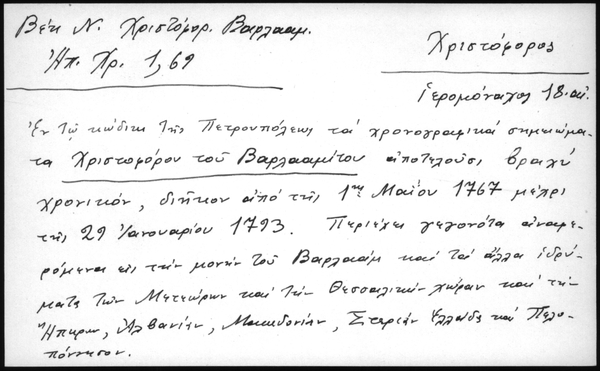 Βέη Ν. Χριστόφορ. Βαρλααμ.
Ἠπ. Χρ. 1, 69
Χριστόφορος
Ἱερομόναχος 18. αἰ.
Ἐν τῷ κώδικι τῆς Πετρουπόλεως τὰ χρονογραφικὰ σημειώμα-
τα Χριστοφόρου τοῦ Βαρλααμίτου ἀποτελοῦσι βραχὺ
χρονικόν, διῆκον ἀπὸ τῆς 1ης Μαΐου 1767 μέχρι
τῆς 29 Ἰανουαρίου 1793. Περιέχει γεγονότα ἀναφε-
ρόμενα εἰς τὴν μονὴν τοῦ Βαρλαὰμ καὶ τὰ ἄλλα ἱδρύ-
ματα τῶν Μετεώρων καὶ τὴν Θεσσαλικὴν χώραν καὶ τὴν
Ἤπειρον, Ἀλβανίαν, Μακεδονίαν, Στερεὰν Ἑλλάδα καὶ Πελο-
πόννησον.